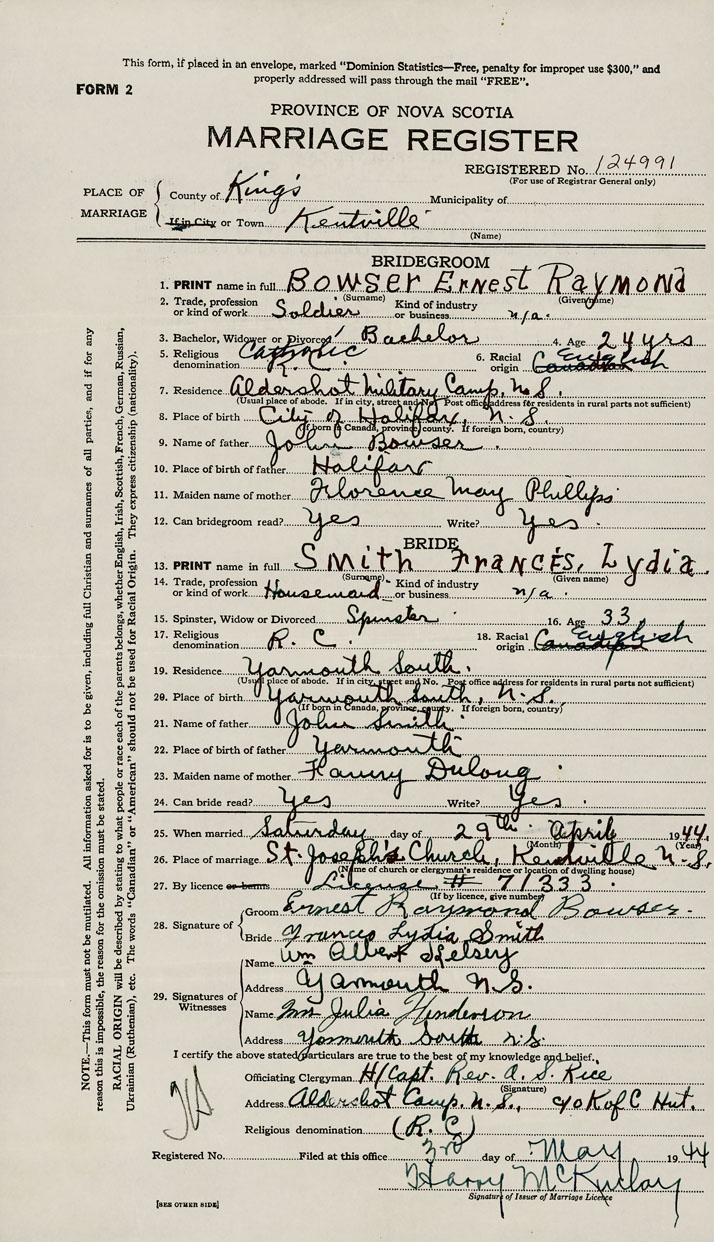 This form, if placed in an envelope, marked “Dominion Statistics—Free, penalty for improper use $300,” and
properly addressed will pass through the mail “FREE”.
FORM 2
PROVINCE OF NOVA SCOTIA
MARRIAGE REGISTER
REGISTERED No. 124991
(For use of Registrar General only)
PLACE OF MARRIAGE
County of King's Municipality of
If in City or Town Kentville
(Name)
BRIDEGROOM
1. PRINT name in full Bowser Ernest Raymond
(Surname) (Given name)
2. Trade, profession or kind of work Soldier Kind of industry or business n/a.
3. Bachelor, Widower or Divorced Bachelor 4. Age 24 yrs
5. Religious denomination Catholic R.C. 6. Racial origin Canadian English
7. Residence Aldershot Military Camp, N.S.
(Usual place of abode. If in city, street and No. Post office address for residents in rural parts not sufficient)
8. Place of birth City of Halifax, N.S.
(If born in Canada, province, county. If foreign born, country)
9. Name of father John Bowser.
10. Place of birth of father Halifax
11. Maiden name of mother Florence May Phillips
12. Can bridegroom read? Yes Write? Yes.
BRIDE
13. PRINT name in full Smith Frances, Lydia.
(Surname) (Given name)
14. Trade, profession or kind of work Housemaid Kind of industry or business n/a.
15. Spinster, Widow or Divorced Spinster 16. Age 33
17. Religious denomination R.C. 18. Racial origin Canadian English
19. Residence Yarmouth South.
(Usual place of abode. If in city, street and No. Post office address for residents in rural parts not sufficient)
20. Place of birth Yarmouth South, N.S.
(If born in Canada, province, county. If foreign born, country)
21. Name of father John Smith
22. Place of birth of father Yarmouth
23. Maiden name of mother Fanny Dulong.
24. Can bride read? Yes Write? Yes.
25. When married Saturday day of 29th April 1944.
(Month) (Year)
26. Place of marriage St. Joseph's Church, Kentville N.S.
(Name of church or clergyman's residence or location of dwelling house)
27. By licence or banns License # 71333.
(If by licence, give number)
28. Signature of
Groom Ernest Raymond Bowser.
Bride Frances Lydia Smith
29. Signatures of Witnesses
Name Wm Albert Kelsey
Address Yarmouth N.S.
Name Mrs Julia Henderson
Address Yarmouth South N.S.
I certify the above stated particulars are true to the best of my knowledge and belief.
Officiating Clergyman H/Capt. Rev. A. S. Rice
(Signature)
Address Aldershot Camp. N.S., c/o K of C Hut.
Religious denomination (R.C)
Registered No. Filed at this office 3rd day of May 1944
Harry McKinlay
Signature of Issuer of Marriage Licence
[SEE OTHER SIDE]
NOTE.—This form must not be mutilated. All information asked for is to be given, including full Christian and surnames of all parties, and if for any
reason this is impossible, the reason for the omission must be stated.
RACIAL ORIGIN will be described by stating to what people or race each of the parents belongs, whether English, Irish, Scottish, French, German, Russian,
Ukrainian (Ruthenian), etc. The words “Canadian” or “American” should not be used for Racial Origin. They express citizenship (nationality).